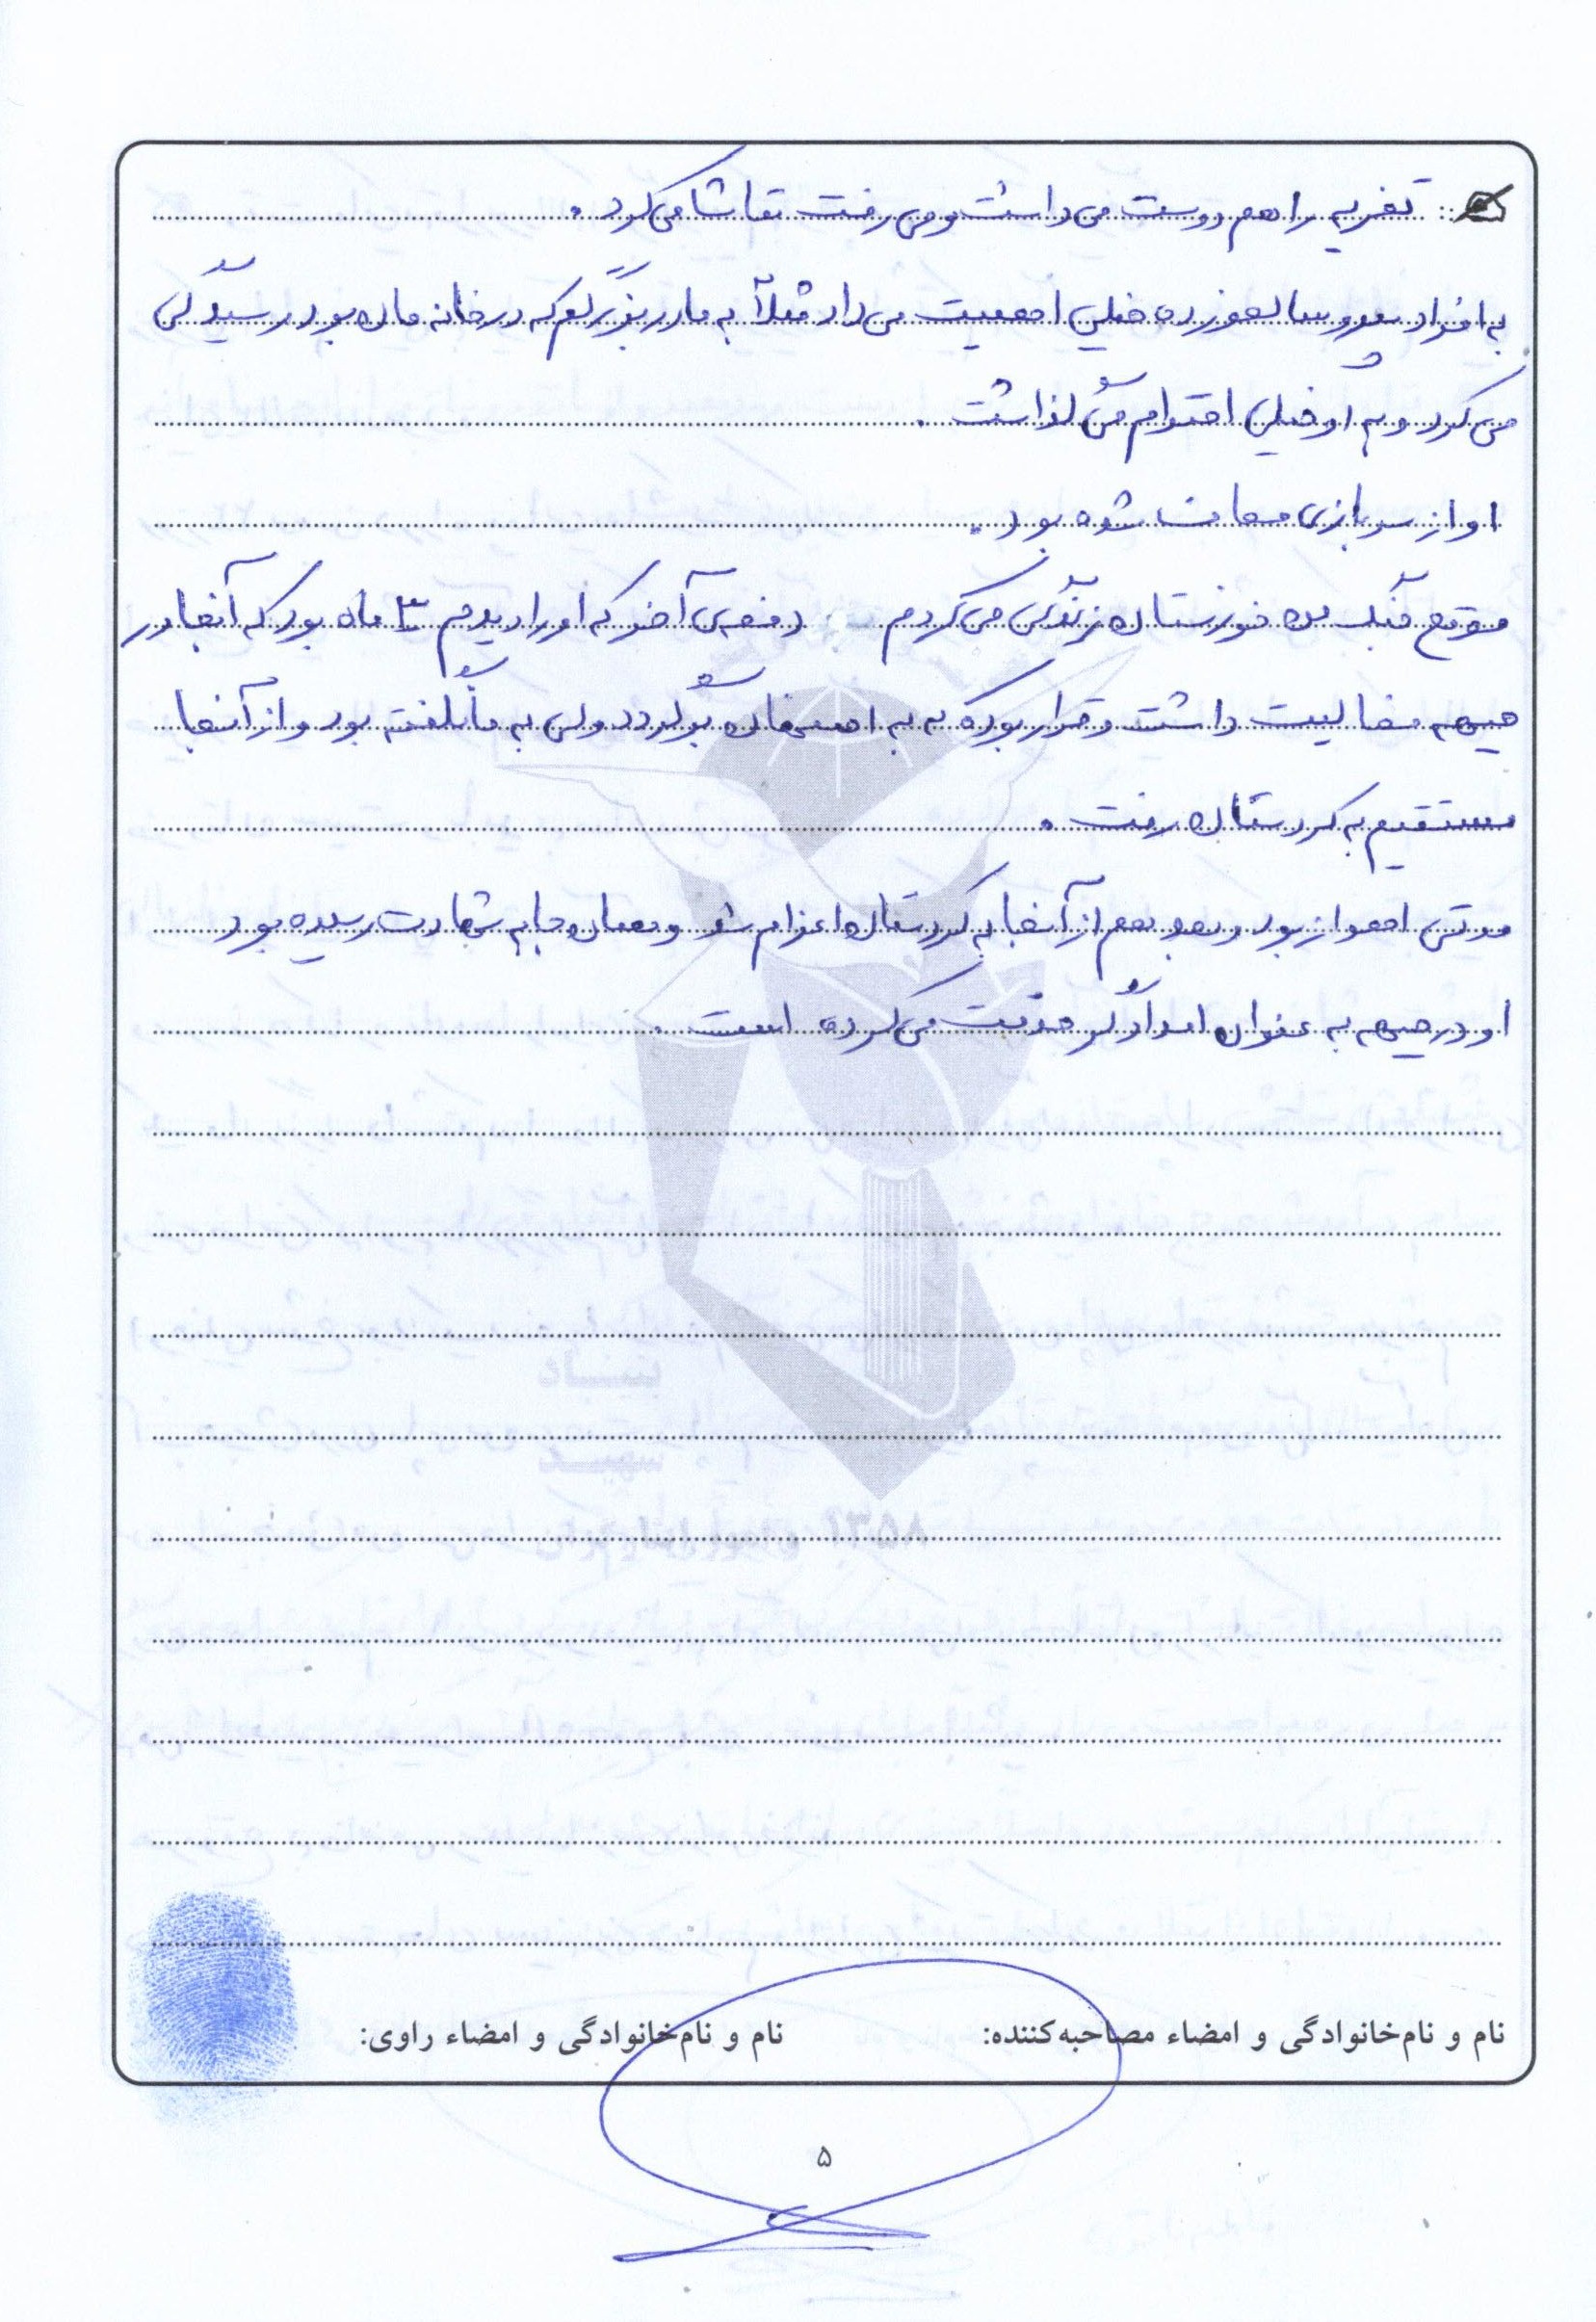 تعزیه را هم دوست می داشت و می رفت تماشا می کرد .
به افراد پیر و سالخورده خیلی اهمیت می داد مثلاً به مادربزرگم که در خانه مان بود رسیدگی
می کرد و به او خیلی احترام می گذاشت .
او از سربازی معاف شده بود .
موقع جنگ من خوزستان زندگی می کردم دفعه ی آخر که او را دیدم ۳ ماه بود که آنجا در
جبهه فعالیت داشت و قرار بود که به به اصفهان برگردد ولی به ما نگفته بود و از آنجا
مستقیم به کردستان رفت .
مدتی اهواز بود و بعد هم از آنجا به کردستان اعزام شد و همان جا به شهادت رسیده بود
او در جبهه به عنوان امدادگر خدمت می کرده است .
بنیاد
شهید
۱۳۵۸
نام و نام خانوادگی و امضاء مصاحبه کننده:
نام و نام خانوادگی و امضاء راوی:
۵